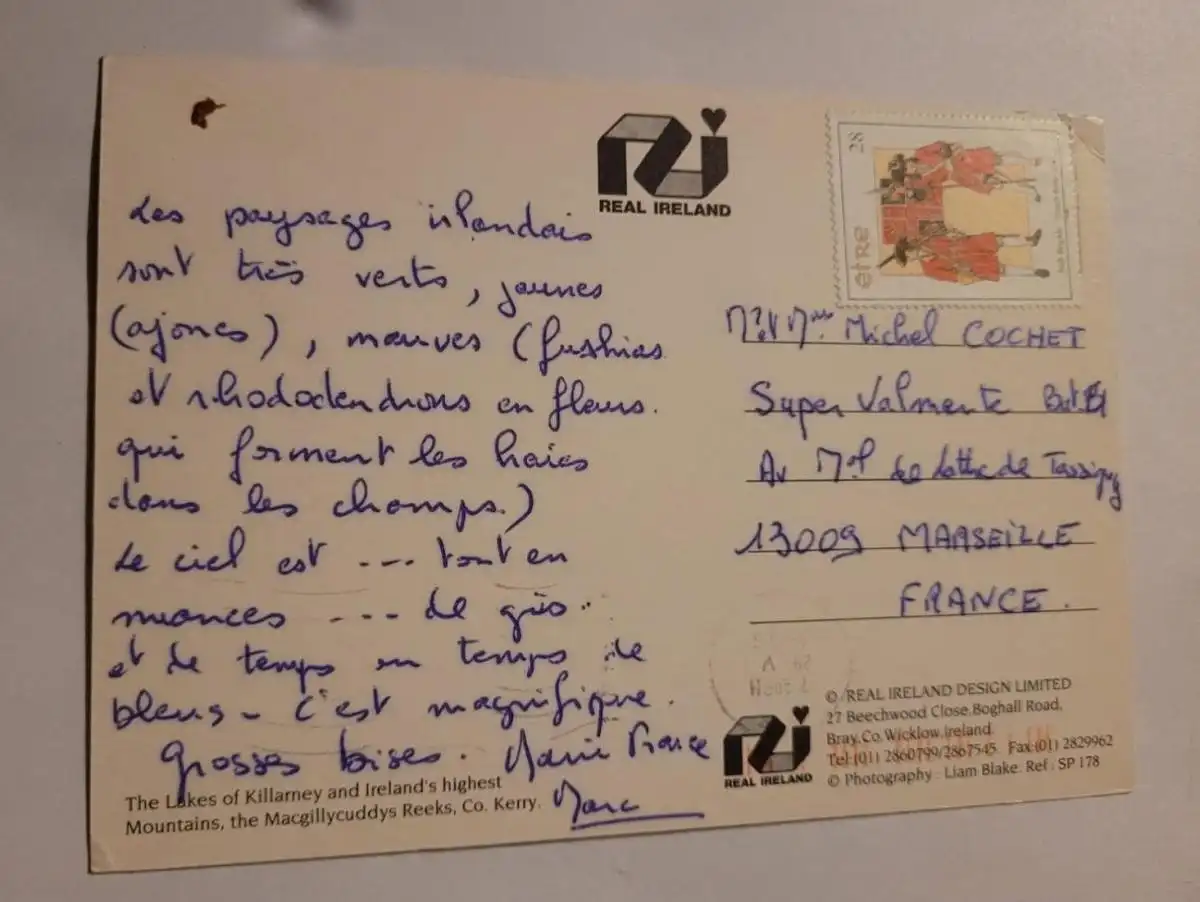 REAL IRELAND
28
éire
Les paysages irlandais
sont très verts, jaunes
(ajoncs), mauves (fushias
et rhododendrons en fleurs.
qui forment les haies
dans les champs.)
Le ciel est --- tout en
nuances --- de gris..
et de temps en temps de
bleus - c'est magnifique.
Grosses bises. Marie France
Marc
The Lakes of Killarney and Ireland's highest
Mountains, the Macgillycuddys Reeks, Co. Kerry.
Mr et Mme Michel COCHET
Super Valmente Bat
Av Mal de Lattre de Tassigny
13009 MARSEILLE
FRANCE.
REAL IRELAND
© REAL IRELAND DESIGN LIMITED
27 Beechwood Close, Boghall Road,
Bray, Co. Wicklow, Ireland.
Tel: (01) 2860799/2867545 Fax: (01) 2829962
© Photography : Liam Blake. Ref : SP 178